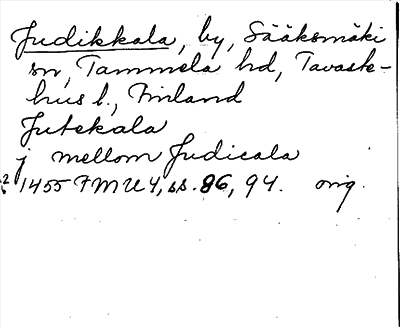 Judikkala, by, Sääksmäki
sn, Tammela hd, Tavaste-
hus l., Finland
Jutekala
j mellom Judicala
2 1455 FMU 4, ss. 86, 94. orig.